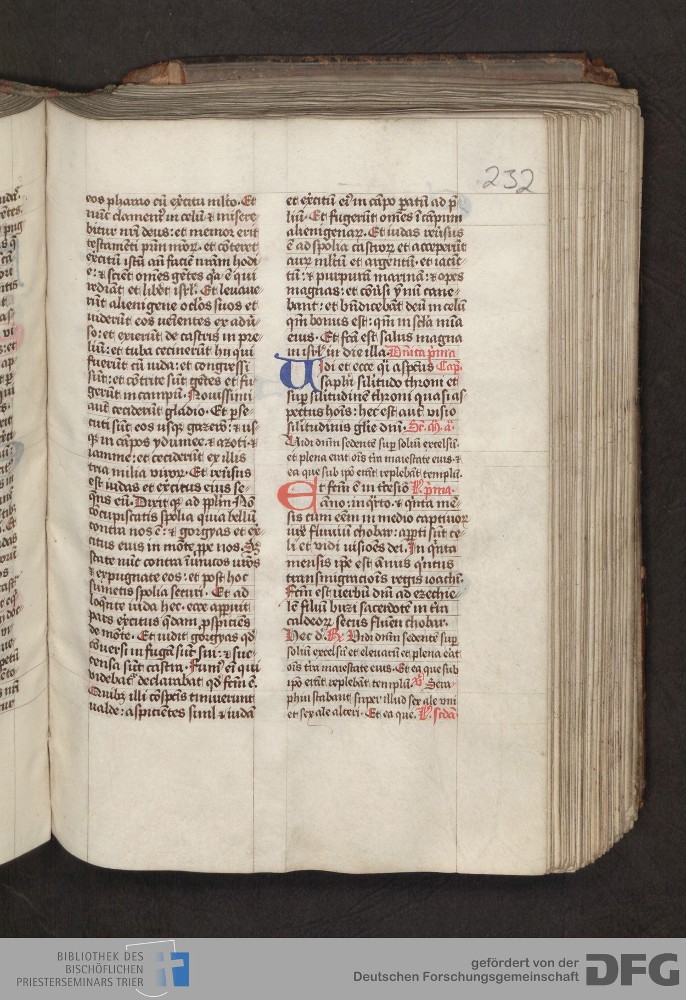 232
eos pharao cū ex̄citu mlto. Et
nūc clamem⁹ in celū & misere
bitur nr̄i deus: et memor erit
testamēti prim mōr. et cōteret
ex̄citū istū an̄ faciē nr̄am hodi
e: & sciēt om̄es gētes qa ē qui
rediāt et libōt isrl. Et levaue
rūt alienigene oclos suos et
viderūt eos veīentes ex adūˢ
so: et exierūt de castris in pre
liū: et tuba cecinerūt hii qui
fuerūt cū iuda: et congressi
sūt: et cōtrite sūt gētes et fu
gerūt in campū. Nouissimi
aut̄ ceciderūt gladio. Et ꝑse
cuti sūt eos usqꝫ gazerō: & us
qꝫ in cāpos ydumee. & azoti. &
iamnie: et ceciderūt ex illis
tria milia virorꝫ. Et rev̄sus
est iudas et ex̄citus eius se
qn̄s eū. Dixit qꝫ ad pplm̄. Nō
cōcupiscatis spolia quia bellū
contra nos ē: & gorgyas et ex̄
citus eius in mōte ꝓpe nos. Sꝫ
state nūc contra inimicos nr̄os
& expugnate eos: et post hoc
sumetis spolia securi. Et ad
loqn̄te iuda hec. ecce apparuit
pars ex̄citus q̄dam ꝓspiciēs
de mōte. Et vidit gorgyas qd̄
cōversi in fugā sūt sui: & suc
censa sūt castra. Fum⁹ ei qui
videbat̄ declarabat qd̄ fcm̄ ē.
Quibꝫ illi cōspc̄is timuerunt
valde: aspiciētes siml & iudā
et ex̄citū ei⁹ in cāpo ꝑatū ad p̄
liū. Et fugerūt om̄es ī cāpum
alienigenarꝫ. Et iudas rev̄sus
ē ad spolia castrorꝫ et acceperūt
aurꝫ mltū et argentū. et iacic
tū: & purpurā marinā: & opes
magnas: et cōūsi ymnū cane
bant: et bn̄dicebāt deū in celū
qm̄ bonus est: qm̄ in scl̄a mīa
eius. Et fcā est salus magna
in isrl in die illa. Dn̄ica pͥma
Vidi et ecce qͥ aspcūs Capͫ.
saphiri silitudo throni et
suꝑ silitudinē throni quasi as
pectus hoīs: hec est aut̄ visio
silitudinis gl̄ie dn̄i. Sr̄. M. a.
Vidi dn̄m sedentē suꝑ soliū excelsū
et plena erat oīs tr̄a maiestate eius. &
ea que sub ip̄o erāt replebāt templū.
Et fcm̄ ē in tͥcesīo L. pͥma.
anno: in qͣrto. & qͥnta mē
sis cum eēm in medio captivorꝫ
iuxͣ fluviū chobar: aꝑti sūt ce
li et vidi visiōes dei. In qͥnta
mensis ip̄e est ān⁹ qͥntus
transmigraciōis regis ioachī.
Fcm̄ est verbū dn̄i ad ezechie
lē filiū buzi sacerdotē in tr̄a
caldeorꝫ secus flum̄ chobar.
Hec d̄. R. Vidi dn̄m sedentē suꝑ
soliū excelsū et elevatū et plena erat
oīs tr̄a maiestate eius. Et ea que sub
ip̄o erāt replebāt templū. V. Sera
phin stabant super illud sex ale uni
et sex ale alteri. Et ea que. L. scd̄a
BIBLIOTHEK DES
BISCHÖFLICHEN
PRIESTERSEMINARS TRIER
gefördert von der
Deutschen Forschungsgemeinschaft
DFG